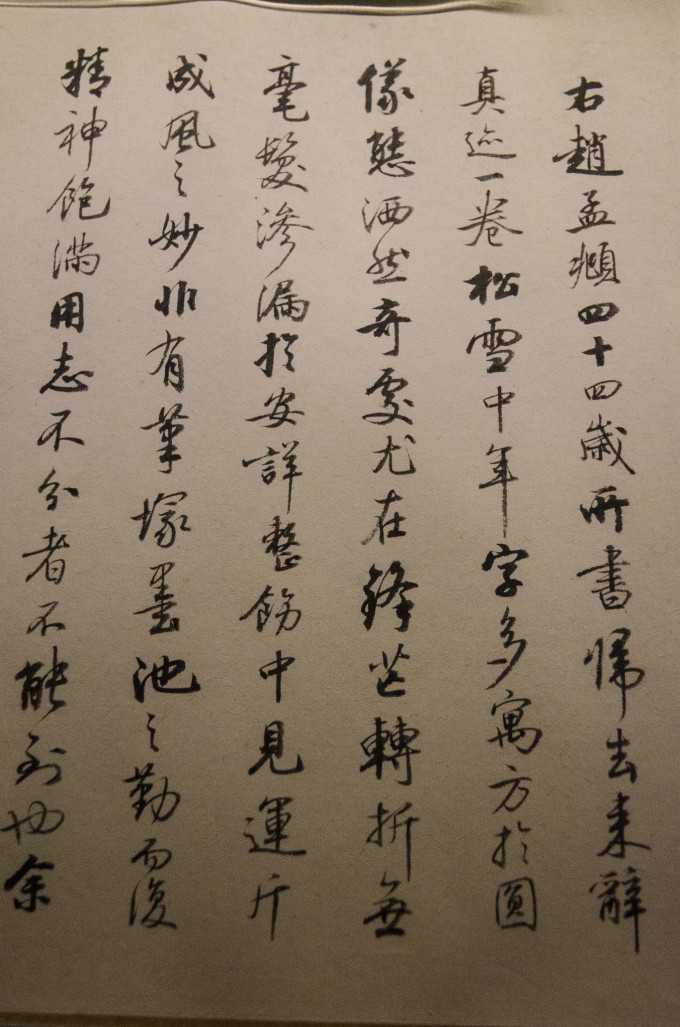 右趙孟頫四十四歲所書歸去来辭
真迹一卷松雪中年字多寓方於圓
儀態洒然奇處尤在鋒芒轉折無
毫髮滲漏於安詳整飭中見運斤
成風之妙非有筆塚墨池之勤而復
精神飽満用志不分者不能到也余